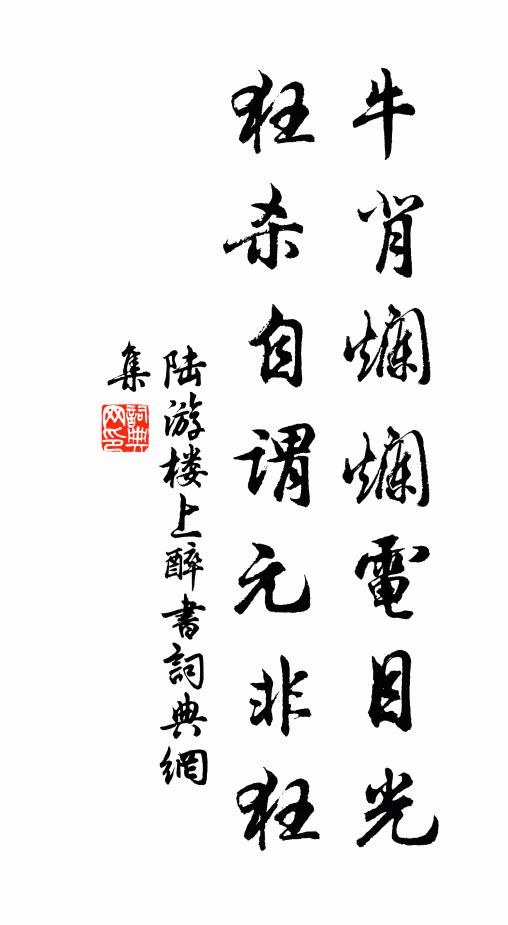 牛背爛爛電目光
狂杀自謂元非狂
陆游楼上醉書詞典網
集
詞典
网印